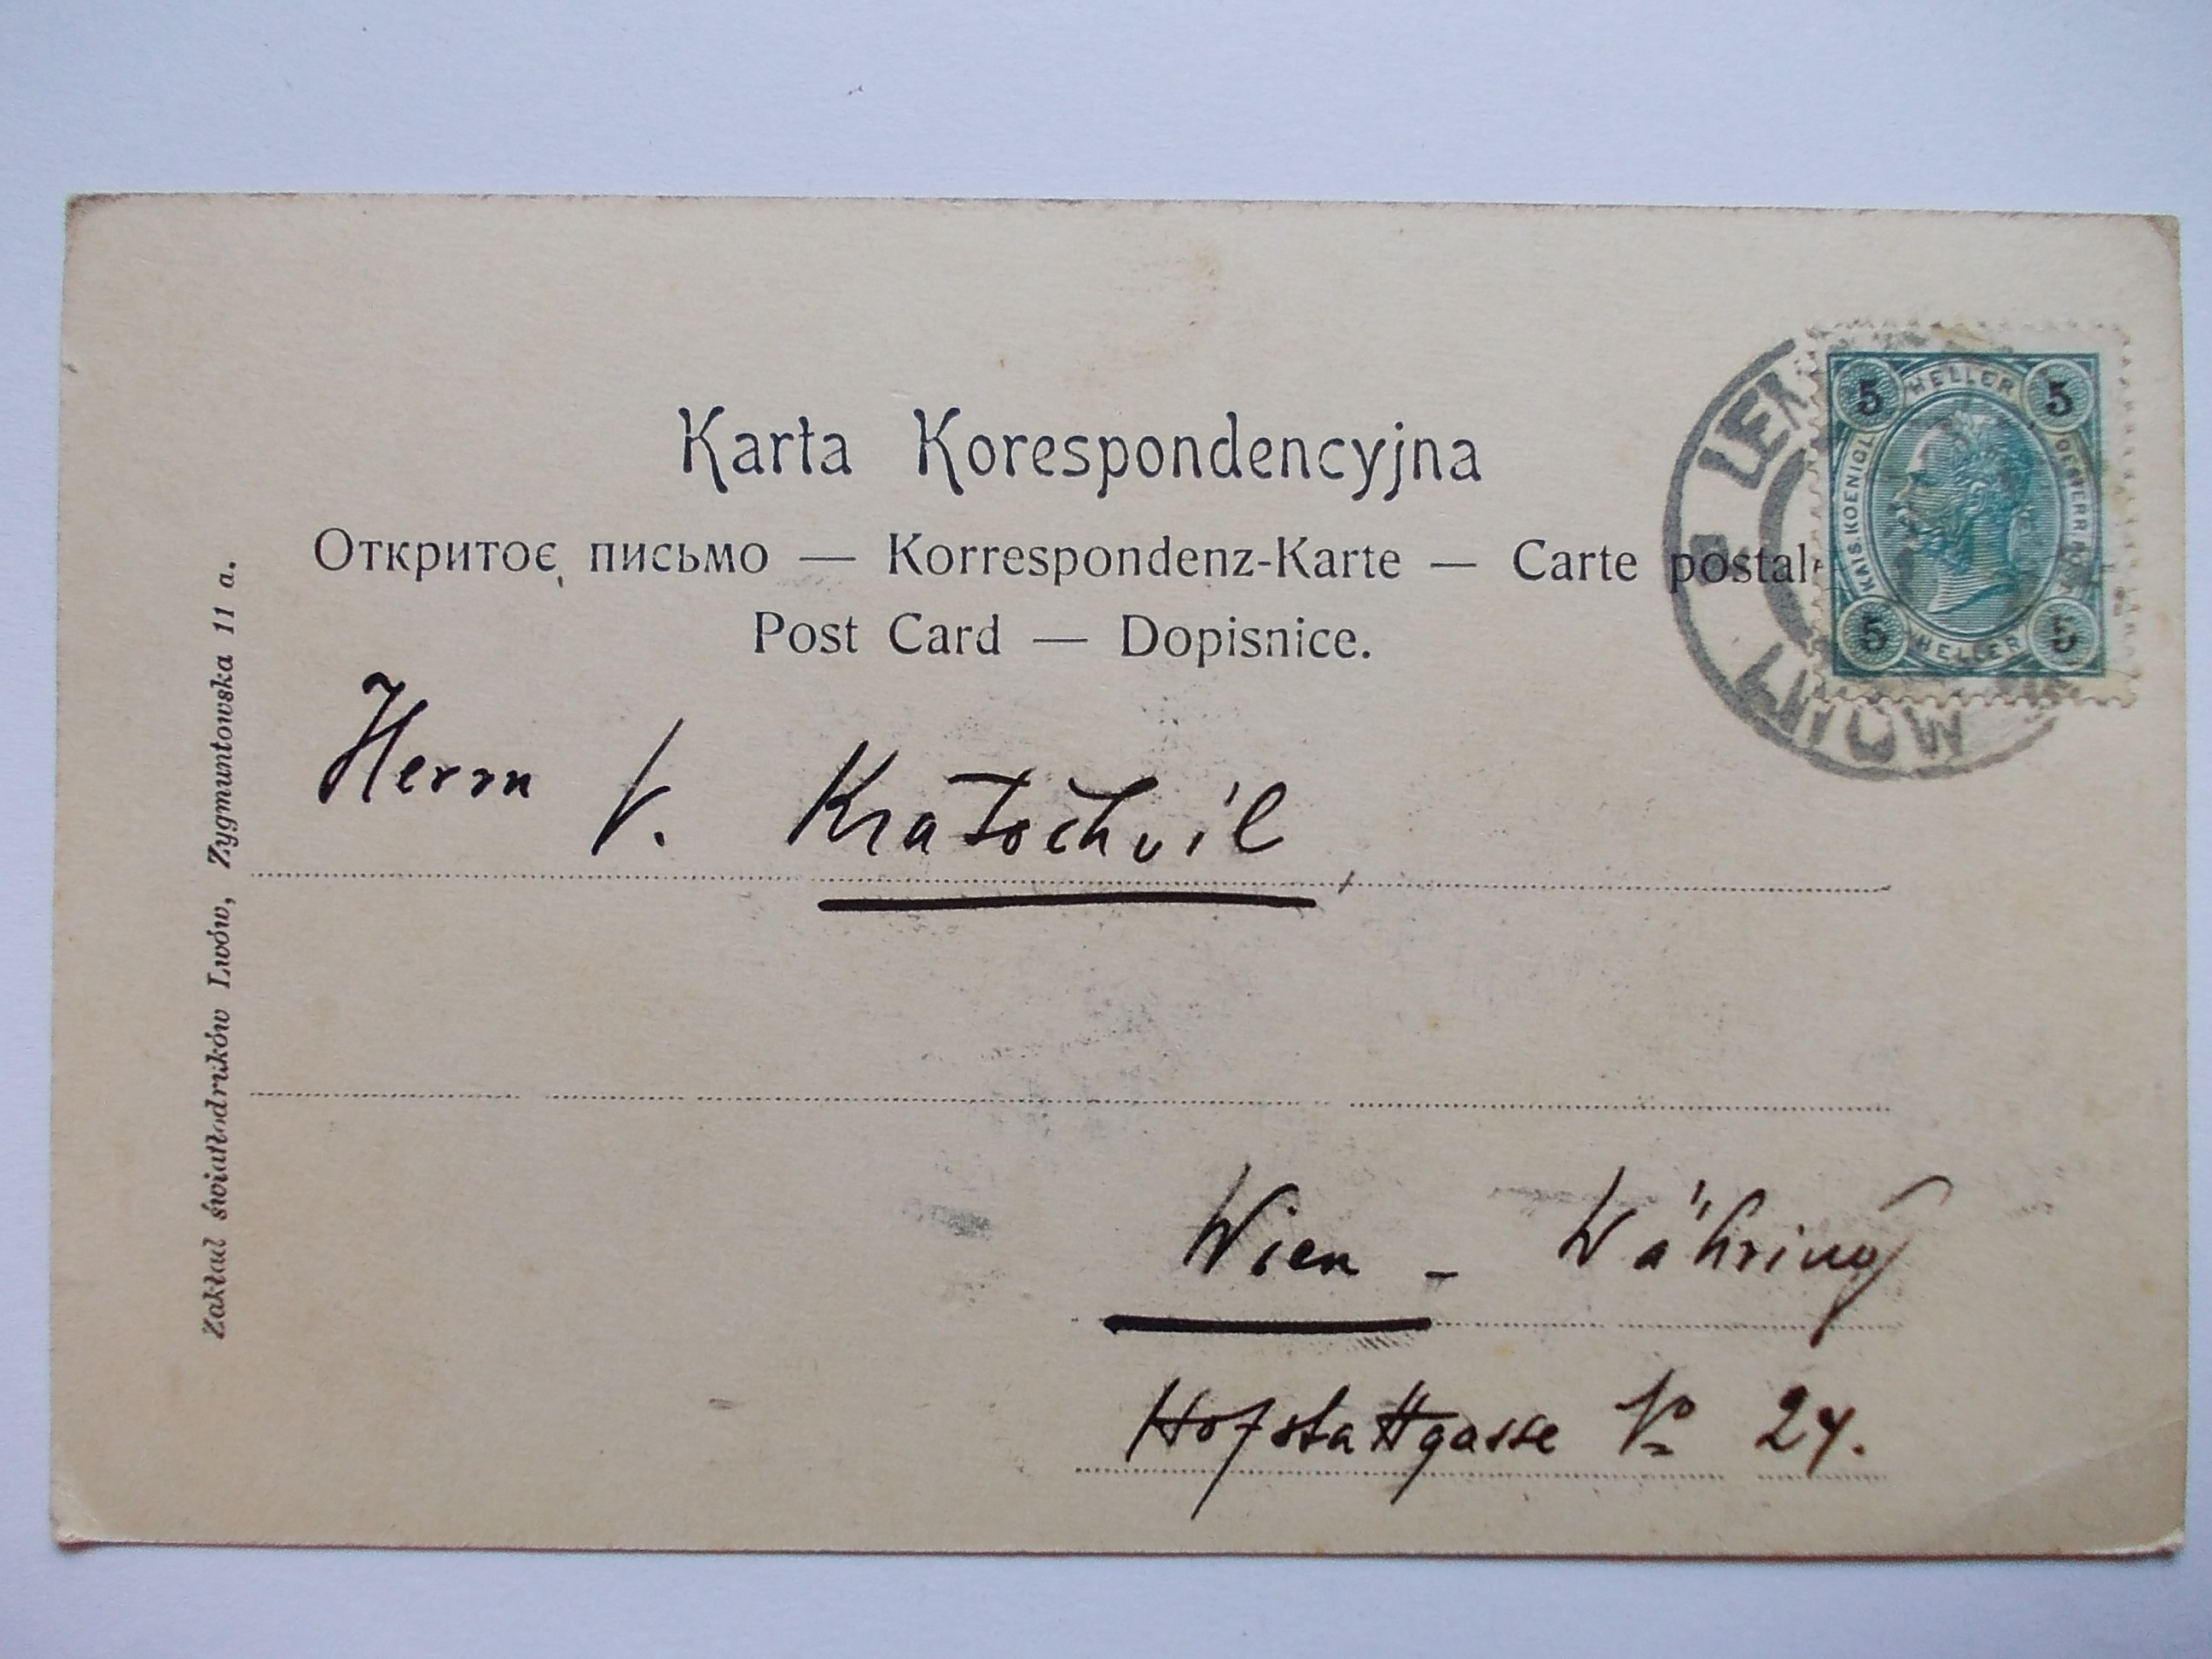 Karta Korespondencyjna
Откритоє письмо — Korrespondenz-Karte — Carte postale
Post Card — Dopisnice.
5 HELLER 5
KAIS. KOENIGL.
5 HELLER 5
LEM
LWÓW
Herrn V. Kratochvil,
Wien - Währing
Hofstattgasse No 24.
Zakład światłodruków Lwów, Zygmuntowska 11 a.